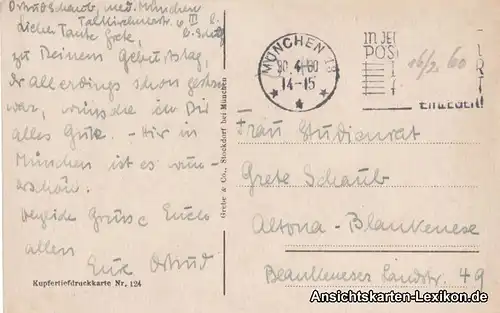 Ortrud Schaub, med. München
Talkirchnerstr. 6 III r.
Liebe Tante Grete,
zu Deinem Geburtstag,
der allerdings schon gestern
war, wünsche ich Dir
alles Gute. - Hier in
München ist es wun-
derschön.
Herzliche Grüsse Euch
allen
Eure Ortrud
Kupfertiefdruckkarte Nr. 124
Grebe & Co., Stockdorf bei München
MÜNCHEN 13
14-15
IN JE
POS
EINLEGEN!
16/2. 60
Frau Studienrat
Grete Schaub
Altona-Blankenese
Blankeneser Landstr. 49
Ansichtskarten-Lexikon.de